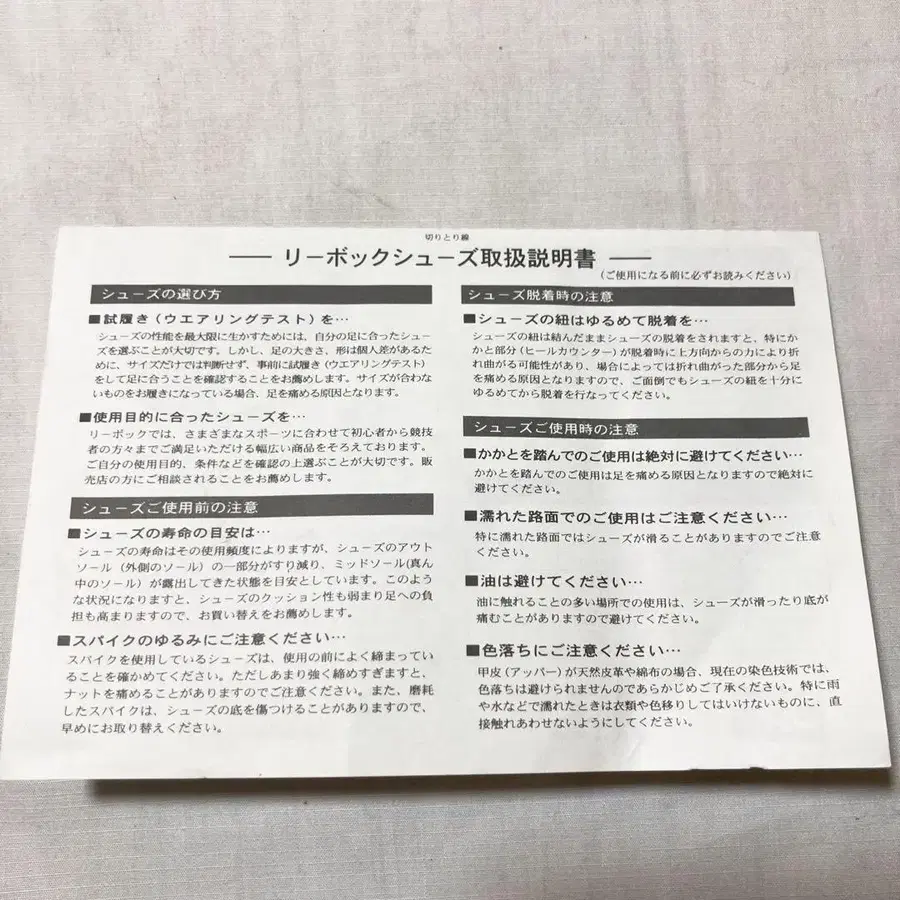 切りとり線
リーボックシューズ取扱説明書
(ご使用になる前に必ずお読みください)
シューズの選び方
■試履き(ウエアリングテスト)を…
シューズの性能を最大限に生かすためには、自分の足に合ったシュー
ズを選ぶことが大切です。しかし、足の大きさ、形は個人差があるた
めに、サイズだけでは判断せず、事前に試履き(ウエアリングテスト)
をして足に合うことを確認することをお薦めします。サイズが合わな
いものをお履きになっている場合、足を痛める原因となります。
■使用目的に合ったシューズを…
リーボックでは、さまざまなスポーツに合わせて初心者から競技
者の方々までご満足いただける幅広い商品をそろえております。
ご自分の使用目的、条件などを確認の上選ぶことが大切です。販
売店の方にご相談されることをお薦めします。
シューズご使用前の注意
■シューズの寿命の目安は…
シューズの寿命はその使用頻度によりますが、シューズのアウト
ソール(外側のソール)の一部分がすり減り、ミッドソール(真ん
中のソール)が露出してきた状態を目安としています。このよう
な状況になりますと、シューズのクッション性も弱まり足への負
担も高まりますので、お買い替えをお薦めします。
■スパイクのゆるみにご注意ください…
スパイクを使用しているシューズは、使用の前によく締まってい
ることを確かめてください。ただしあまり強く締めすぎますと、
ナットを痛めることがありますのでご注意ください。また、磨耗
したスパイクは、シューズの底を傷つけることがありますので、
早めにお取り替えください。
シューズ脱着時の注意
■シューズの紐はゆるめて脱着を…
シューズの紐は結んだままシューズの脱着をされますと、特にか
かと部分(ヒールカウンター)が脱着時に上方向からの力により折
れ曲がる可能性があり、場合によっては折れ曲がった部分から足
を痛める原因となりますので、ご面倒でもシューズの紐を十分に
ゆるめてから脱着を行なってください。
シューズご使用時の注意
■かかとを踏んでのご使用は絶対に避けてください…
かかとを踏んでのご使用は足を痛める原因となりますので絶対に
避けてください。
■濡れた路面でのご使用はご注意ください…
特に濡れた路面ではシューズが滑ることがありますのでご注意
ください。
■油は避けてください…
油に触れることの多い場所での使用は、シューズが滑ったり底が
痛むことがありますので避けてください。
■色落ちにご注意ください…
甲皮(アッパー)が天然皮革や綿布の場合、現在の染色技術では、
色落ちは避けられませんのであらかじめご了承ください。特に雨
や水などで濡れたときは衣類や色移りしてはいけないものに、直
接触れあわせないようにしてください。